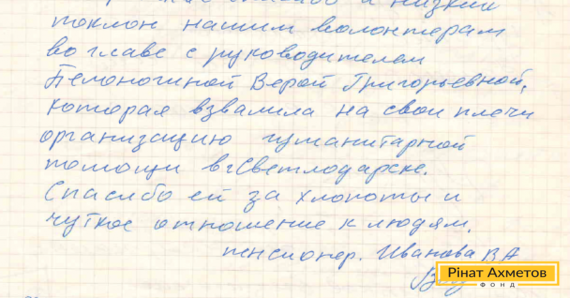 спасибо и низкий
поклон нашим волонтерам
во главе с руководителем
Верой Григорьевной,
которая взвалила на свои плечи
организацию гуманитарной
помощи в г Светлодарске.
Спасибо ей за хлопоты и
чуткое отношение к людям.
пенсионер. Иванова ВА
Рінат Ахметов
ФОНД